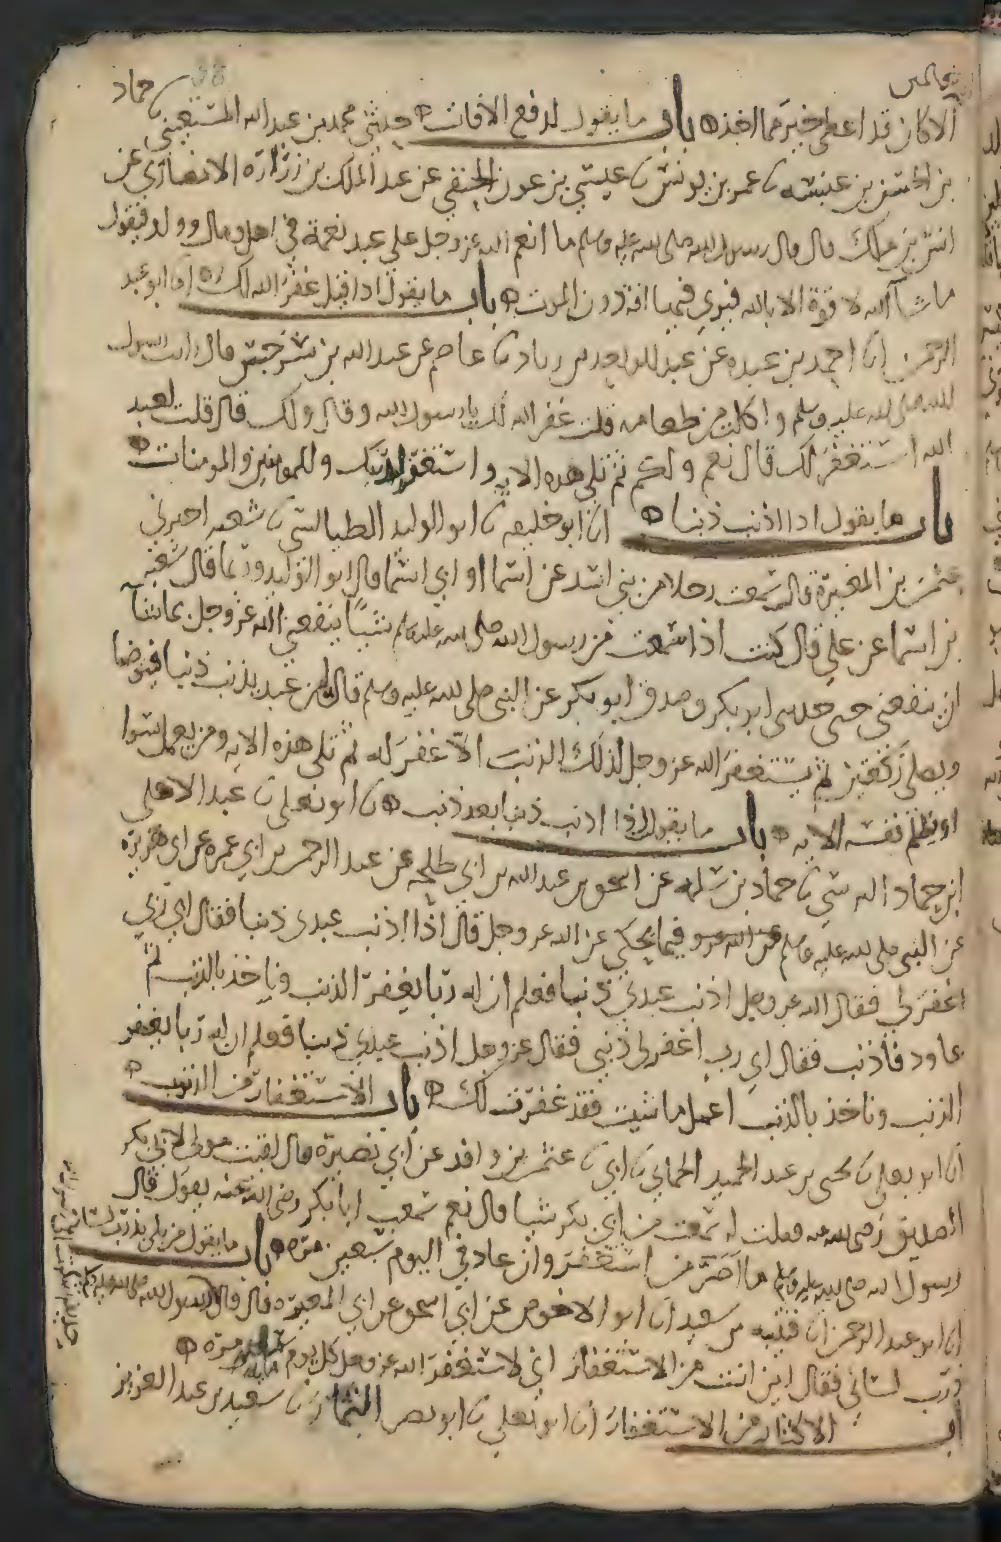 الا كان قد اعطى خير مما اخذ ه باب ما يقول لدفع الافات ه حدثني محمد بن عبد الله المستعيني ثنا حماد
بن الحسن بن عنبسه ثنا عمر بن يونس ثنا عيسى بن عون الحنفي عن عبد الملك بن زرارة الانصاري عن
انس بن ملك قال قال رسول الله صلى الله عليه وسلم ما انعم الله عز وجل على عبد نعمة في اهل ومال وولد فيقول
ما شا الله لا قوة الا بالله فيرى فيها افة دون الموت ه باب ما يقول اذا قيل غفر الله لك ه انا ابو عبد
الرحمن انا احمد بن عبده عن عبد الواحد بن زياد ثنا عاصم عن عبد الله بن سرجس قال رايت رسول
الله صلى الله عليه وسلم واكلت من طعامه قلت غفر الله لك يا رسول الله وقال ولك قال قلت لعبد
الله استغفر لك قال نعم ولكم ثم تلى هذه الاية واستغفر لذنبك وللمومنين والمومنات ه
باب ما يقول اذا اذنب ذنبا ه انا ابو خليفه ثنا ابو الوليد الطيالسي ثنا شعبه اخبرني
عثمن بن المغيرة قال سمعت رجلا من بني اسد عن اسما او ابي اسما قال ابو الوليد وربما قال شعبه
بن اسما عن علي قال كنت اذا سمعت من رسول الله صلى الله عليه وسلم شيئا ينفعني الله عز وجل بما شا
ان ينفعني حتى حدثني ابو بكر وصدق ابو بكر عن النبي صلى الله عليه وسلم قال ما من عبد يذنب ذنبا فيتوضا
ويصلي ركعتين ثم يستغفر الله عز وجل لذلك الذنب الا غفر له ثم تلى هذه الايه ومن يعمل سوا
او يظلم نفسه الايه ه باب ما يقول اذا اذنب ذنبا بعد ذنب ه ثنا ابو يعلى ثنا عبد الاعلى
ابن حماد النرسي ثنا حماد بن سلمه عن اسحق بن عبد الله بن ابي طلحه عن عبد الرحمن بن ابي عمره عن ابي هريره
عن النبي صلى الله عليه وسلم فيما يحكي عن الله عز وجل قال اذا اذنب عبدي ذنبا فقال اي ربي
اغفر لي فقال الله عز وجل اذنب عبدي ذنبا فعلم ان له ربا يغفر الذنب وياخذ بالذنب ثم
عاود فاذنب فقال اي رب اغفر لي ذنبي فقال عز وجل اذنب عبدي ذنبا فعلم ان له ربا يغفر
الذنب وياخذ بالذنب اعمل ما شيت فقد غفرت لك ه باب الاستغفار من الذنوب ه
انا ابو يعلى ثنا يحيى بن عبد الحميد الحماني ثنا ابي ثنا عثمن بن واقد عن ابي نصيرة قال لقيت مولى لابي بكر
الصديق رضي الله عنه فقلت له سمعت من ابي بكر شيا قال نعم سمعت ابا بكر رضي الله عنه يقول قال
رسول الله صلى الله عليه وسلم ما اصر من استغفر وان عاد في اليوم سبعين مره ه باب ما يقول من بلي بذرب لسانه
انا ابو عبد الرحمن انا قتيبه بن سعيد انا ابو الاحوص عن ابي اسحق عن ابي المغيره قال قال رسول الله صلى الله عليه وسلم
ذرب لساني فقال اين انت من الاستغفار اني لاستغفر الله عز وجل كل يوم مايه مره ه
باب الاكثار من الاستغفار انا ابو يعلى ثنا ابو نصر التمار ثنا سعيد بن عبد العزيز